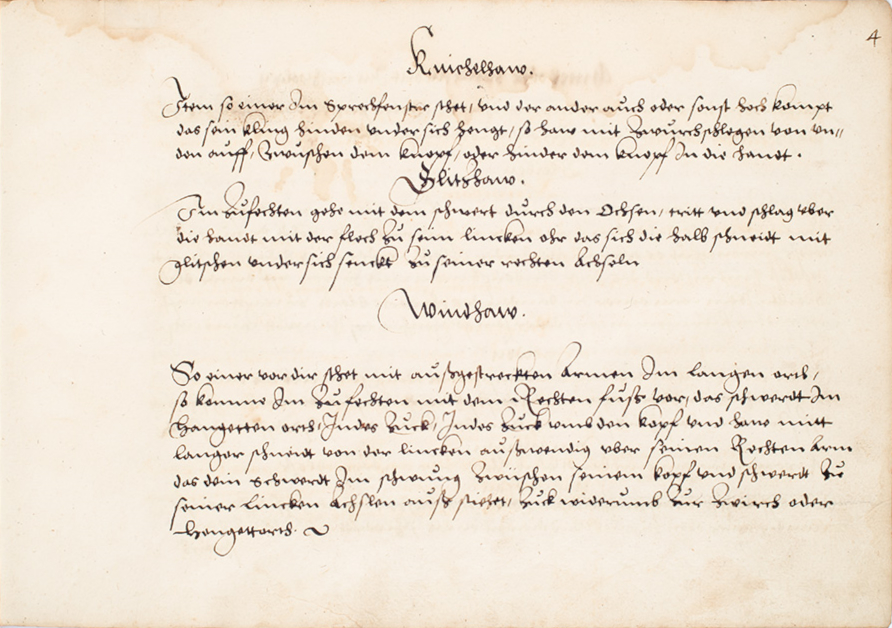 4
Knichelhaw.
Item so einer Im Sprechfenster stehet, vnd der ander auch oder sonst hoch kompt
das sein kling hinden vnder sich hengt, so haw mit Zwurchschlegen von vn„
den auff, Zwuschen dem knopf, oder hinder dem knopf In die handt.
Glitzhaw.
Im Zufechten gehe mit dem schwert durch den Ochsen, tritt vnd schlag vber
die handt mit der flech Zu seim lincken ohr das sich die halb schneidt mit
glitschen vnder sich senckt Zu seiner rechten Achseln
Windhaw.
So einer vor dir stehet mit außgestreckten Armen Im langen orth,
so komme Im Zufechten mit dem Rechten fuß vor, das schwerdt Im
Hangetten orth, Indes Zuck, Indes Zuck vmb den kopf vnd haw mitt
langer schneidt von der lincken außwendig vber seinen Rechten Arm
das dein Schwerdt Im schwung Zwüschen seinem kopf vnd schwerdt Zu
seiner Lincken Achslen auß stehet, Zuck widerumb Zur Zwirch oder
Hengettorth.